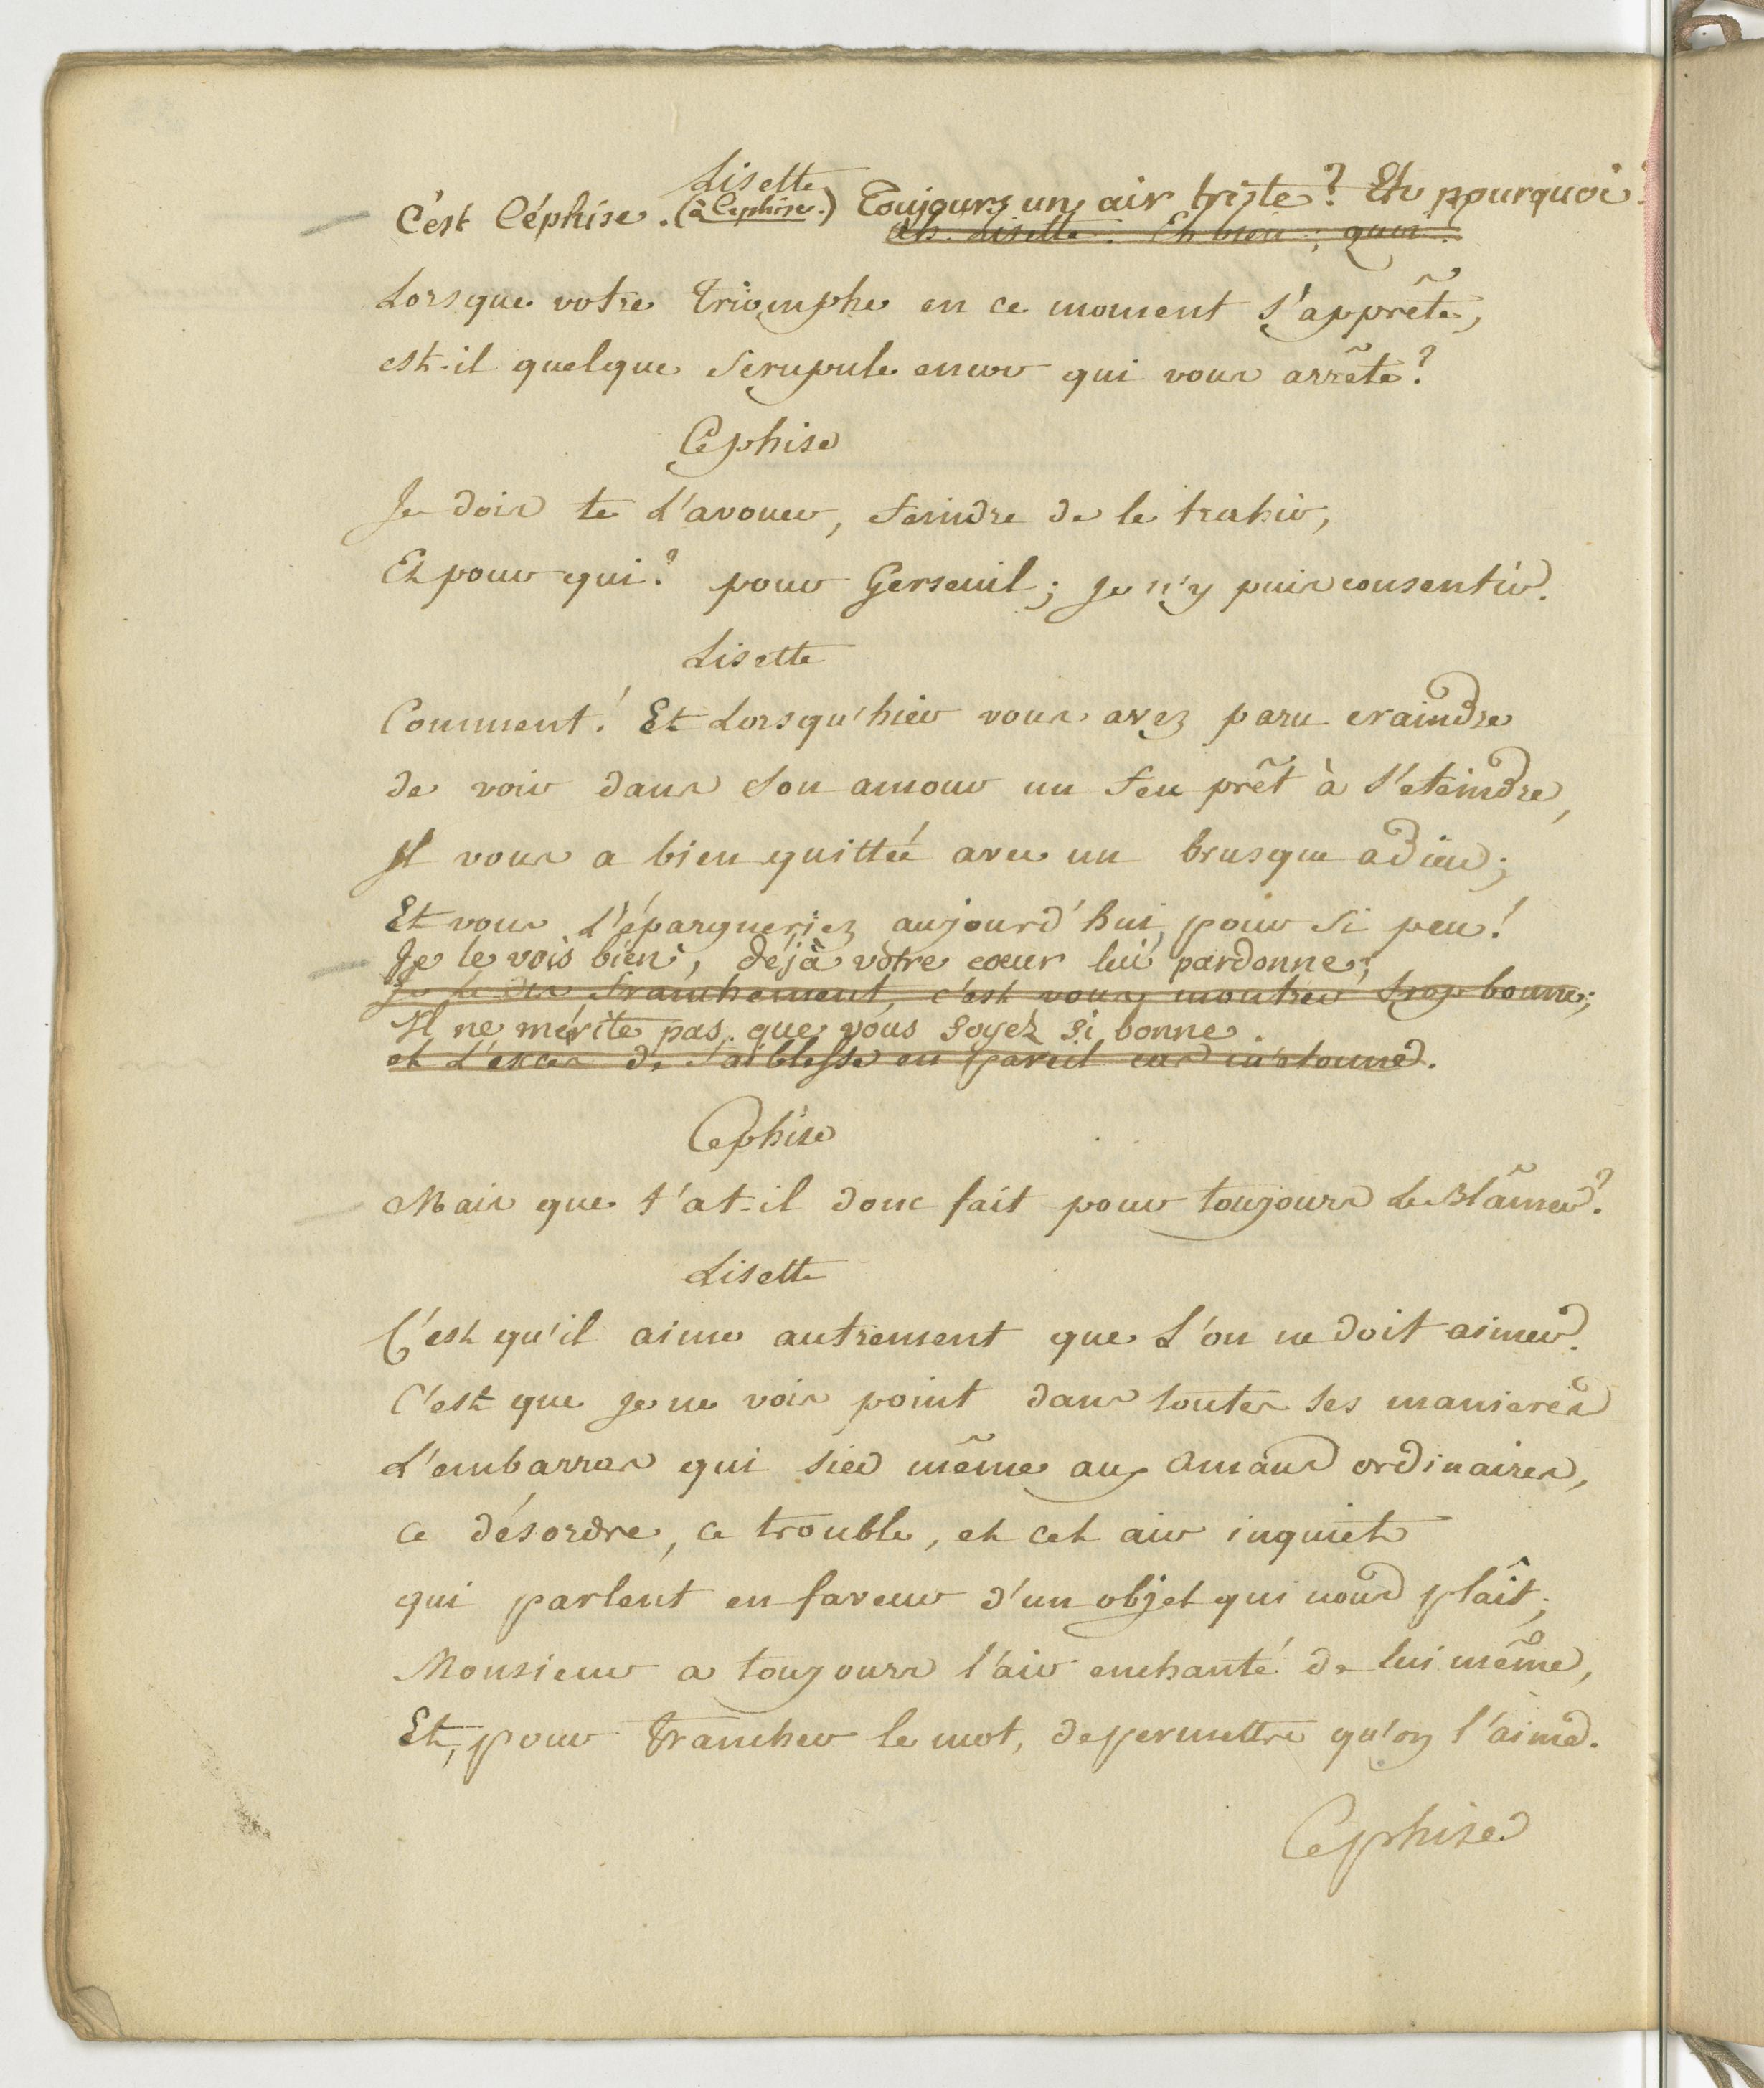 Lisette
C'est Céphise. (à Céphise.) Toujours un air triste? Et pourquoi?
Ah. Lisette. Eh bien; quoi!
Lorsque votre triomphe en ce moment s'apprête,
est-il quelque scrupule encor qui vous arrête?
Céphise
Je dois te l'avouer, feindre de le trahir,
Et pour qui? pour Gerseuil; Je n'y puis consentir.
Lisette
Comment! Et Lorsqu'hier vous avez paru craindre
de voir dans son amour un feu prêt à s'eteindre,
Il vous a bien quittée avec un brusque adieu;
Et vous l'épargneriez aujourd'hui, pour si peu!
Je le vois bien, déjà votre cœur lui pardonne;
Je le dis franchement, c'est vous montrer trop bonne;
Il ne mérite pas que vous soyez si bonne.
et l'excès de faiblesse en pareil cas m'etonne.
Cephise
Mais que t'at-il donc fait pour toujours le Blâmer?
Lisette
C'est qu'il aime autrement que l'on ne doit aimer.
C'est que je ne vois point dans toutes ses manieres
L'embarras qui sied même aux amans ordinaires,
ce désordre, ce trouble, et cet air inquiet
qui parlent en faveur d'un objet qui nous plaît;
Monsieur a toujours l'air enchanté de lui même,
Et, pour trancher le mot, de permettre qu'on l'aime.
Cephise